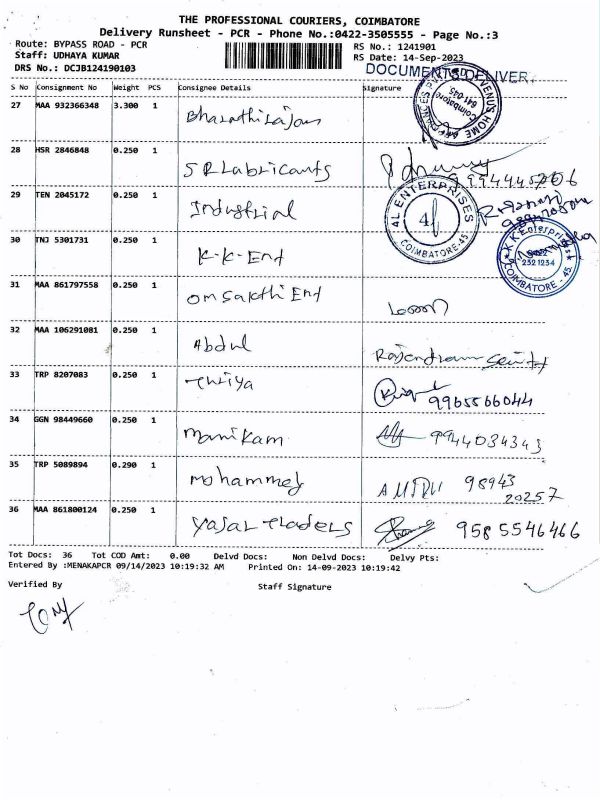 THE PROFESSIONAL COURIERS, COIMBATORE
Delivery Runsheet - PCR - Phone No.:0422-3505555 - Page No.:3
Route: BYPASS ROAD - PCR
Staff: UDHAYA KUMAR
DRS No.: DCJB124190103
RS No.: 1241901
RS Date: 14-Sep-2023
DOCUMENTS DELIVER
S No Consignment No Weight PCS Consignee Details Signature
27 MAA 932366348 3.300 1 Bharathirajan
VENUS HOME
Coimbatore
641 045
28 HSR 2846848 0.250 1 S R Lubricants
29 TEN 2045172 0.250 1 Industrial
AL ENTERPRISES
COIMBATORE-45
30 TNJ 5301731 0.250 1 K-K-Ent
K K Enterprises
2321234
COIMBATORE - 45
31 MAA 861797558 0.250 1 Om Sakthi Ent
32 MAA 106291081 0.250 1 Abdul
Rajendran
33 TRP 8207083 0.250 1 Thriya
9965566044
34 GGN 98449660 0.250 1 Manikam
9944034343
35 TRP 5089894 0.290 1 Mohammed
98943
20257
36 MAA 861800124 0.250 1 Yasar Traders
9585546466
Tot Docs: 36 Tot COD Amt: 0.00 Delvd Docs: Non Delvd Docs: Delvy Pts:
Entered By :MENAKAPCR 09/14/2023 10:19:32 AM Printed On: 14-09-2023 10:19:42
Verified By
Staff Signature